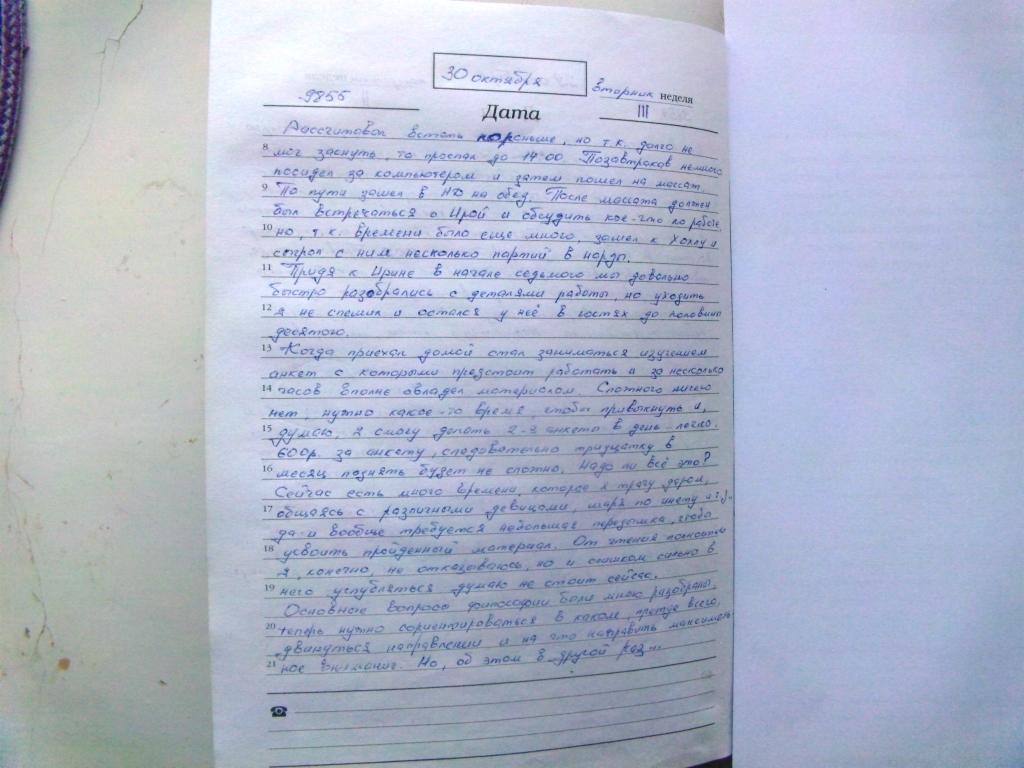 30 октября
вторник неделя
9855
Дата
III
Рассчитовал встать пораньше, но т.к. долго не
8 мог заснуть, то проспал до 14:00. Позавтракав немного
посидел за компьютером и затем пошел на массаж.
9 По пути зашел в НФ на обед. После массажа должен
был встречаться с Ирой и обсудить кое-что по работе,
10 но, т.к. времени было еще много, зашел к Холлу и
сыграл с ним несколько партий в нарды.
11 Придя к Ирине в начале седьмого мы довольно
быстро разобрались с деталями работы, но уходить
12 я не спешил и остался у неё в гостях до половины
десятого.
13 Когда приехал домой стал заниматься изучением
анкет с которыми предстоит работать и за несколько
14 часов вполне овладел материалом. Сложного ничего
нет, нужно какое-то время чтобы привыкнуть и,
15 думаю, я смогу делать 2-3 анкеты в день легко.
600р. за анкету, следовательно тридцатку в
16 месяц поднять будет не сложно. Надо ли всё это?
Сейчас есть много времени, которое я трачу даром,
17 общаясь с различными девицами, шаря по инету и т.д.,
да и вообще требуется небольшая передышка, чтобы
18 усвоить пройденный материал. От чтения полностью
я, конечно, не отказываюсь, но и слишком сильно в
19 него углубляться думаю не стоит сейчас.
Основные вопросы философии были мною разобраны,
20 теперь нужно сориентироваться в каком, прежде всего,
двинуться направлении и на что направить максималь
21 ное внимание. Но, об этом в другой раз...